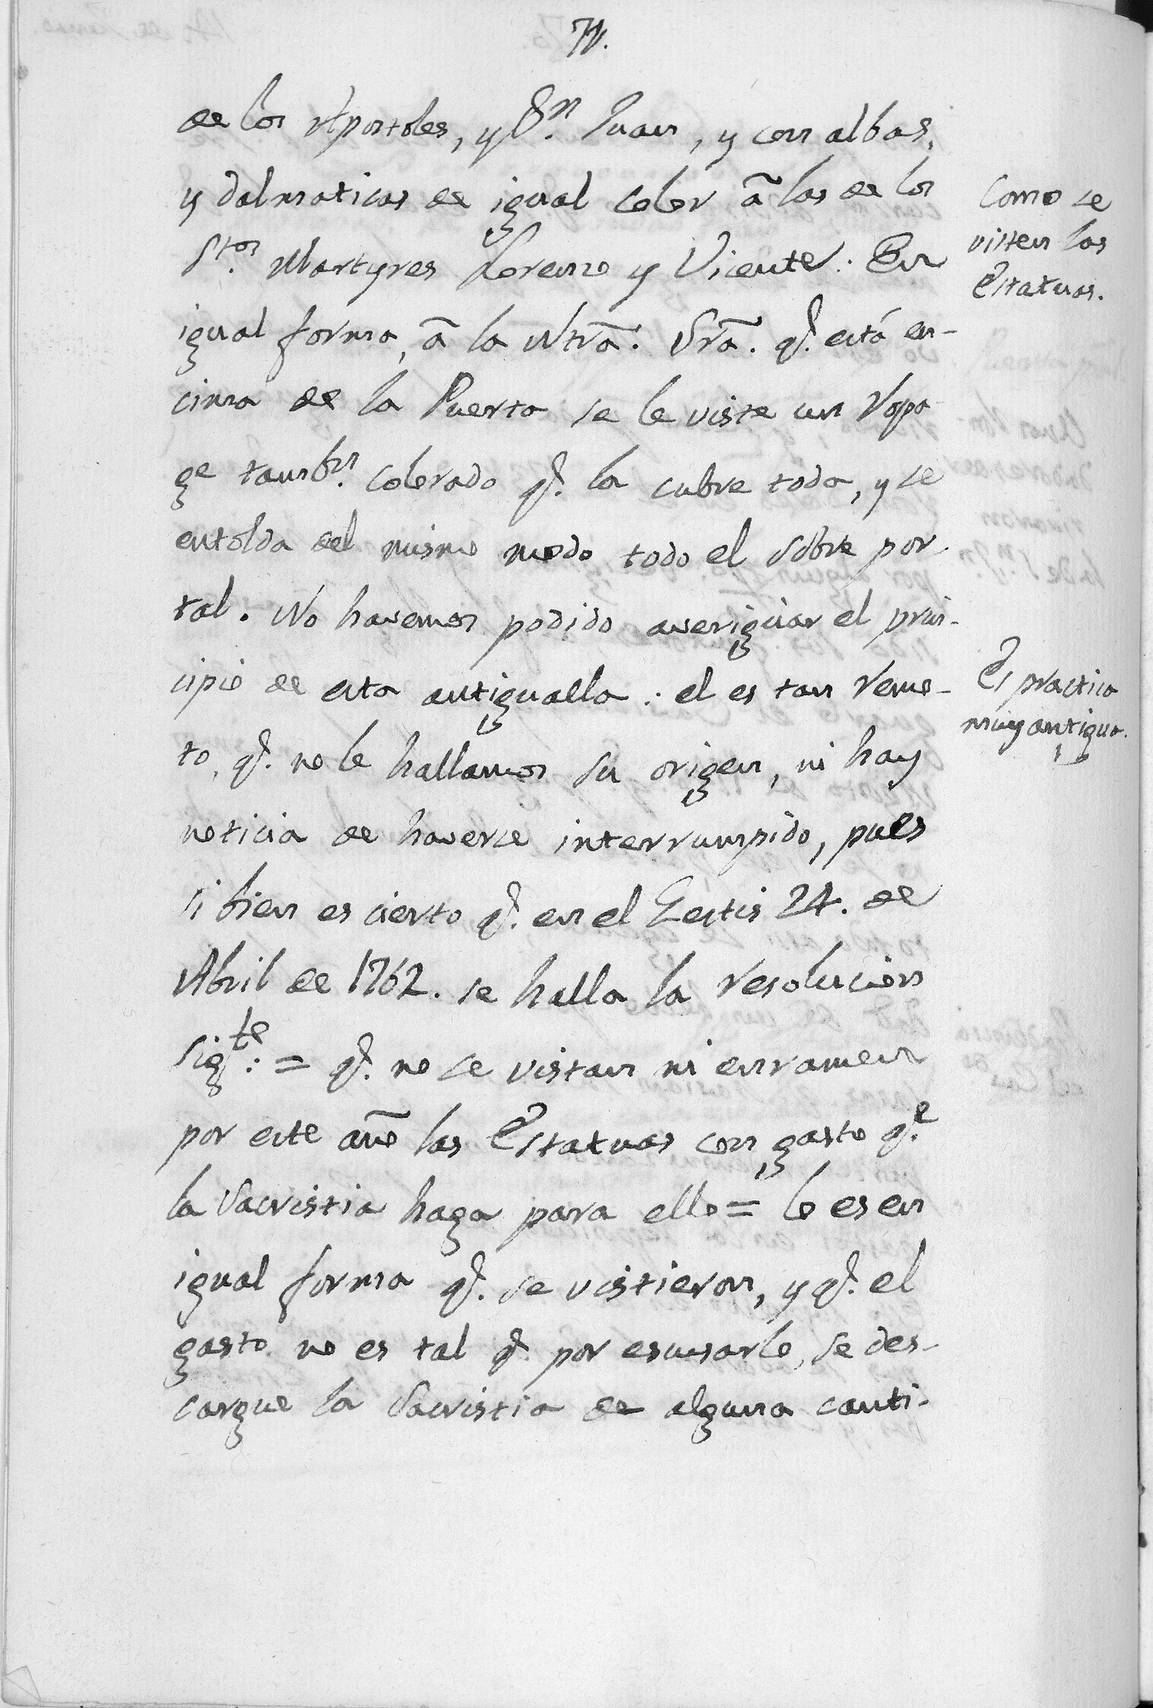 de los Apostoles, y Sn. Juan, y con albas,
y dalmaticas de igual color â las de los
Stos. Martyres Lorenzo y Vicente. En
igual forma, â la ntrã. Srã. q. está en-
cima de la Puerta se le viste un Ropa-
ge tambn. colorado q. la cubre toda, y se
entolda del mismo modo todo el sobre por-
tal. No havemos podido aueriguar el prin-
cipio de esta antigualla: el es tan remo-
to, q. no le hallamos su origen, ni hay
noticia de haverse interrumpido, pues
si bien es cierto q. en el Gestis 24. de
Abril de 1762. se halla la resolucion
sigte: = q. no se vistan ni enramen
por este año las Estatuas con gasto qe.
la Sacristia haga para ello = lo es en
igual forma q. se vistieron, y q. el
gasto no es tal q. por escusarlo, se des-
cargue la Sacristia de alguna canti-
Como se
visten las
Estatuas.
Es practica
muy antigua.